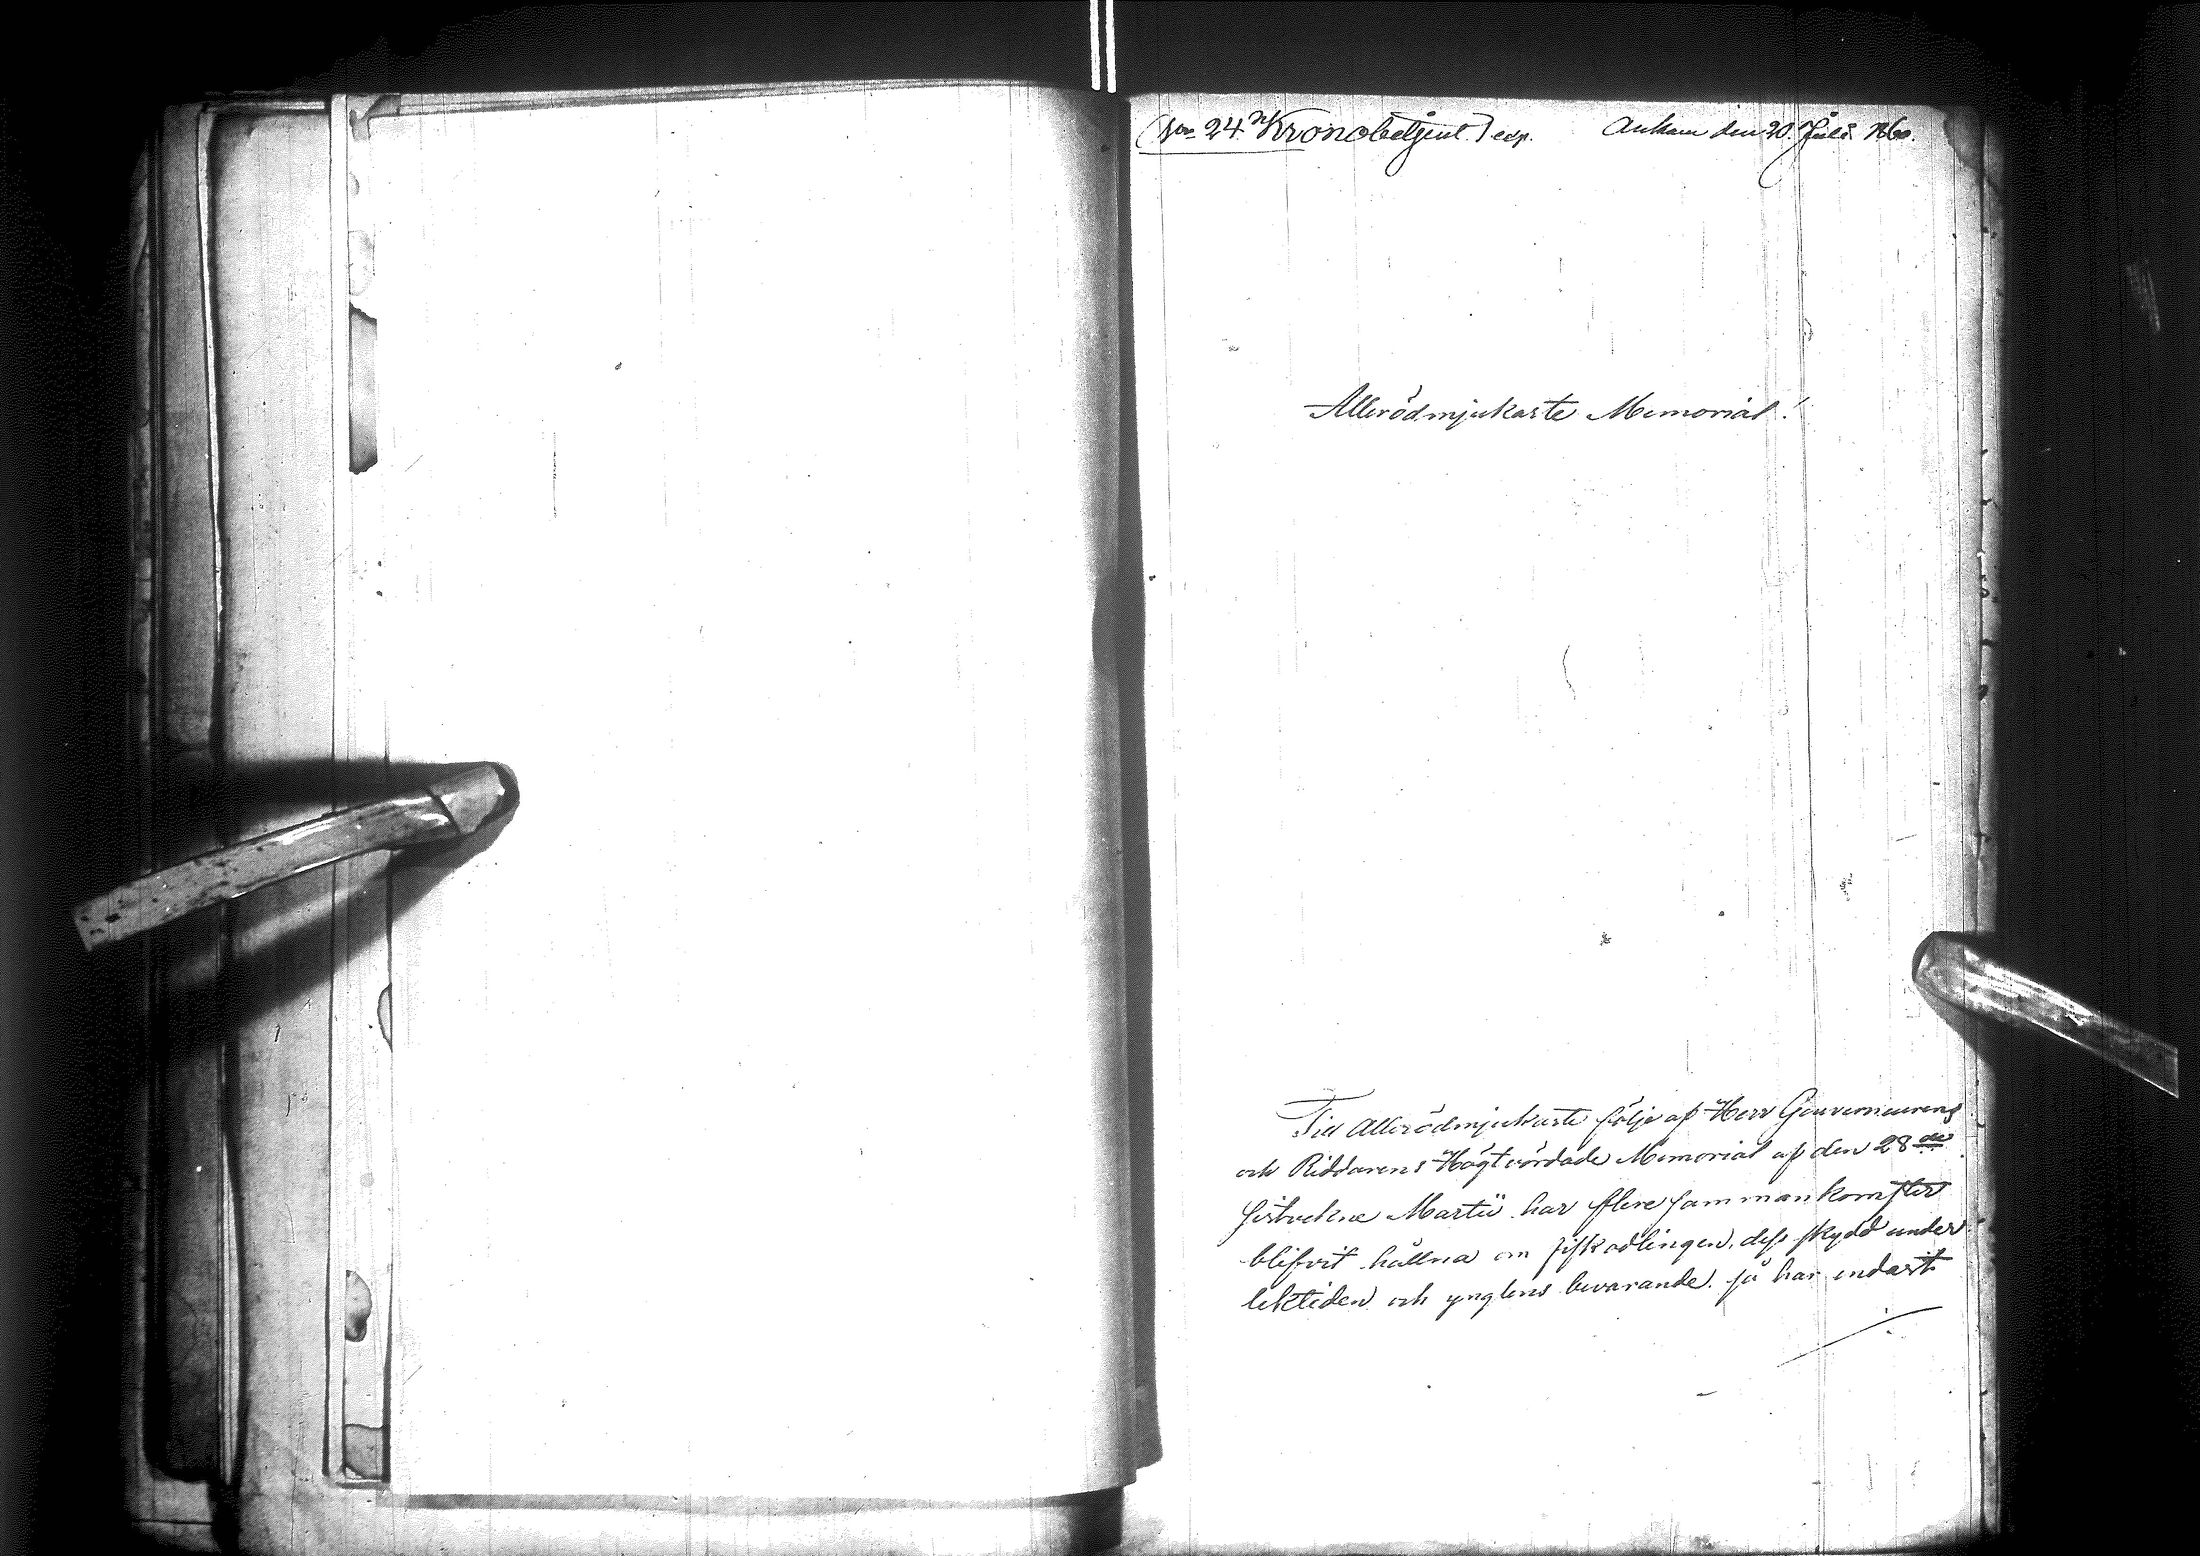 24. Kronobetjent. exp. Ank. den 20. Juli 1860.
Allerödmjukaste Memorial!
Till Allerödmjukaste följe af Herr Gouverneurens
och Riddarens Högtvördade Memorial af den 28de
sistvekne Martii har flere sammankomster
blifvit hållna om fiskodlingen, dess skydd under
lektiden och ynglens bevarande. så har endast